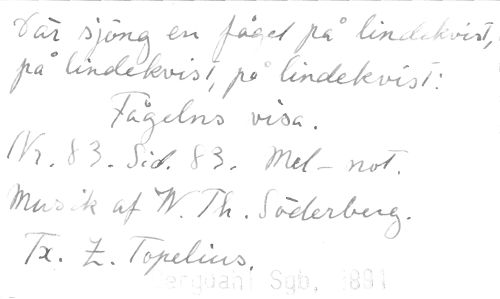 Där sjöng en fågel på lindekvist,
på lindekvist, på lindekvist:
Fågelns visa.
Nr. 83. Sid. 83. Mel-not.
Musik af W. Th. Söderberg.
Tx. Z. Topelius.
Sgb, 1891